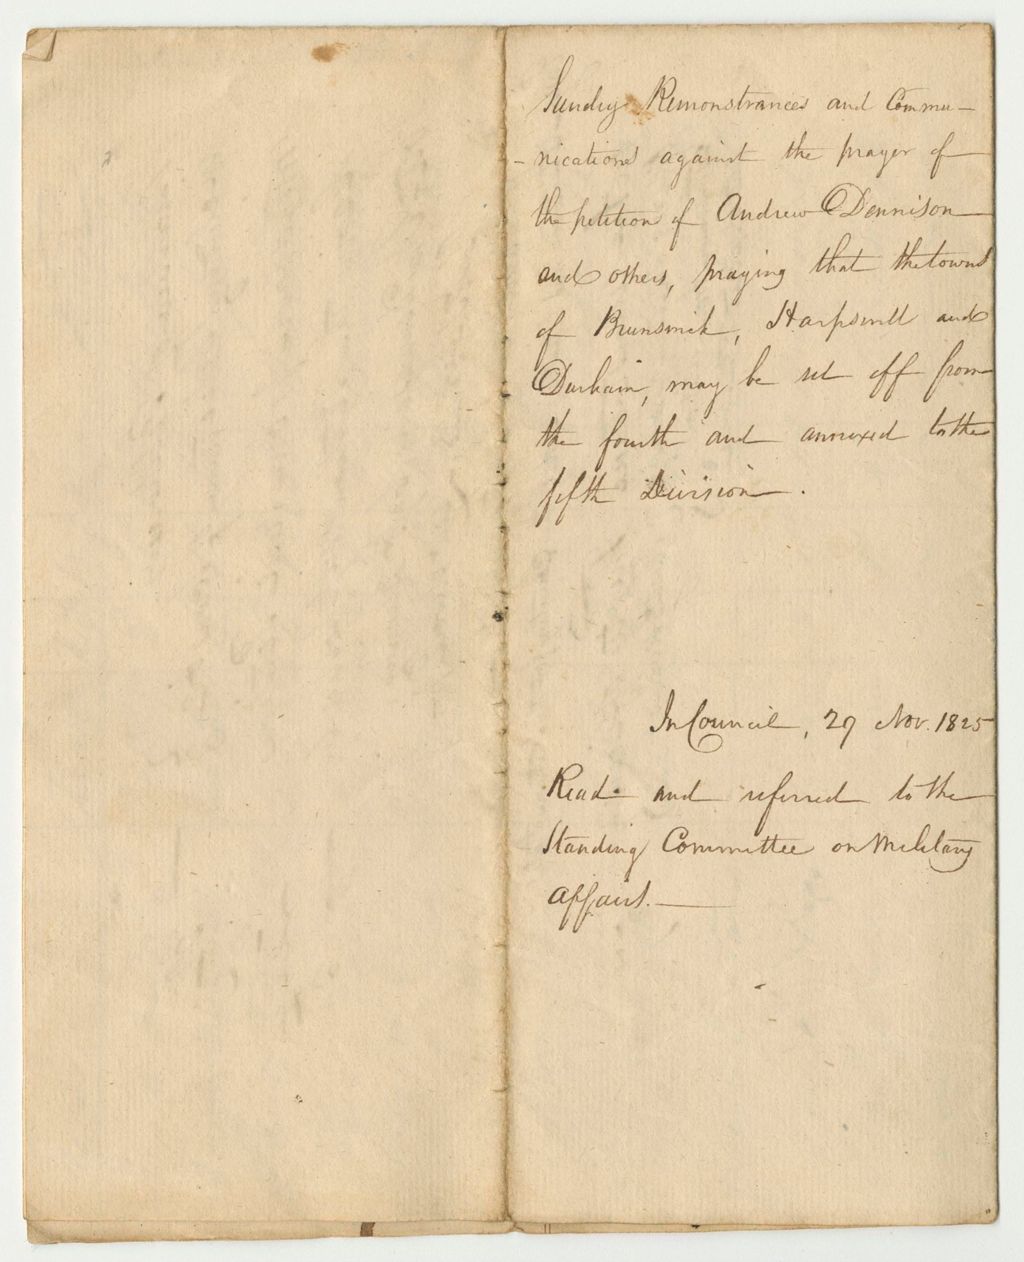 Sundry Remonstrances and Commu-
-nications against the prayer of
the petition of Andrew Dennison
and others, praying that the towns
of Brunswick, Harpswell and
Durham, may be set off from
the fourth and annexed to the
fifth Division.
In Council, 29 Nov. 1825
Read and referred to the
Standing Committee on Military
Affairs.